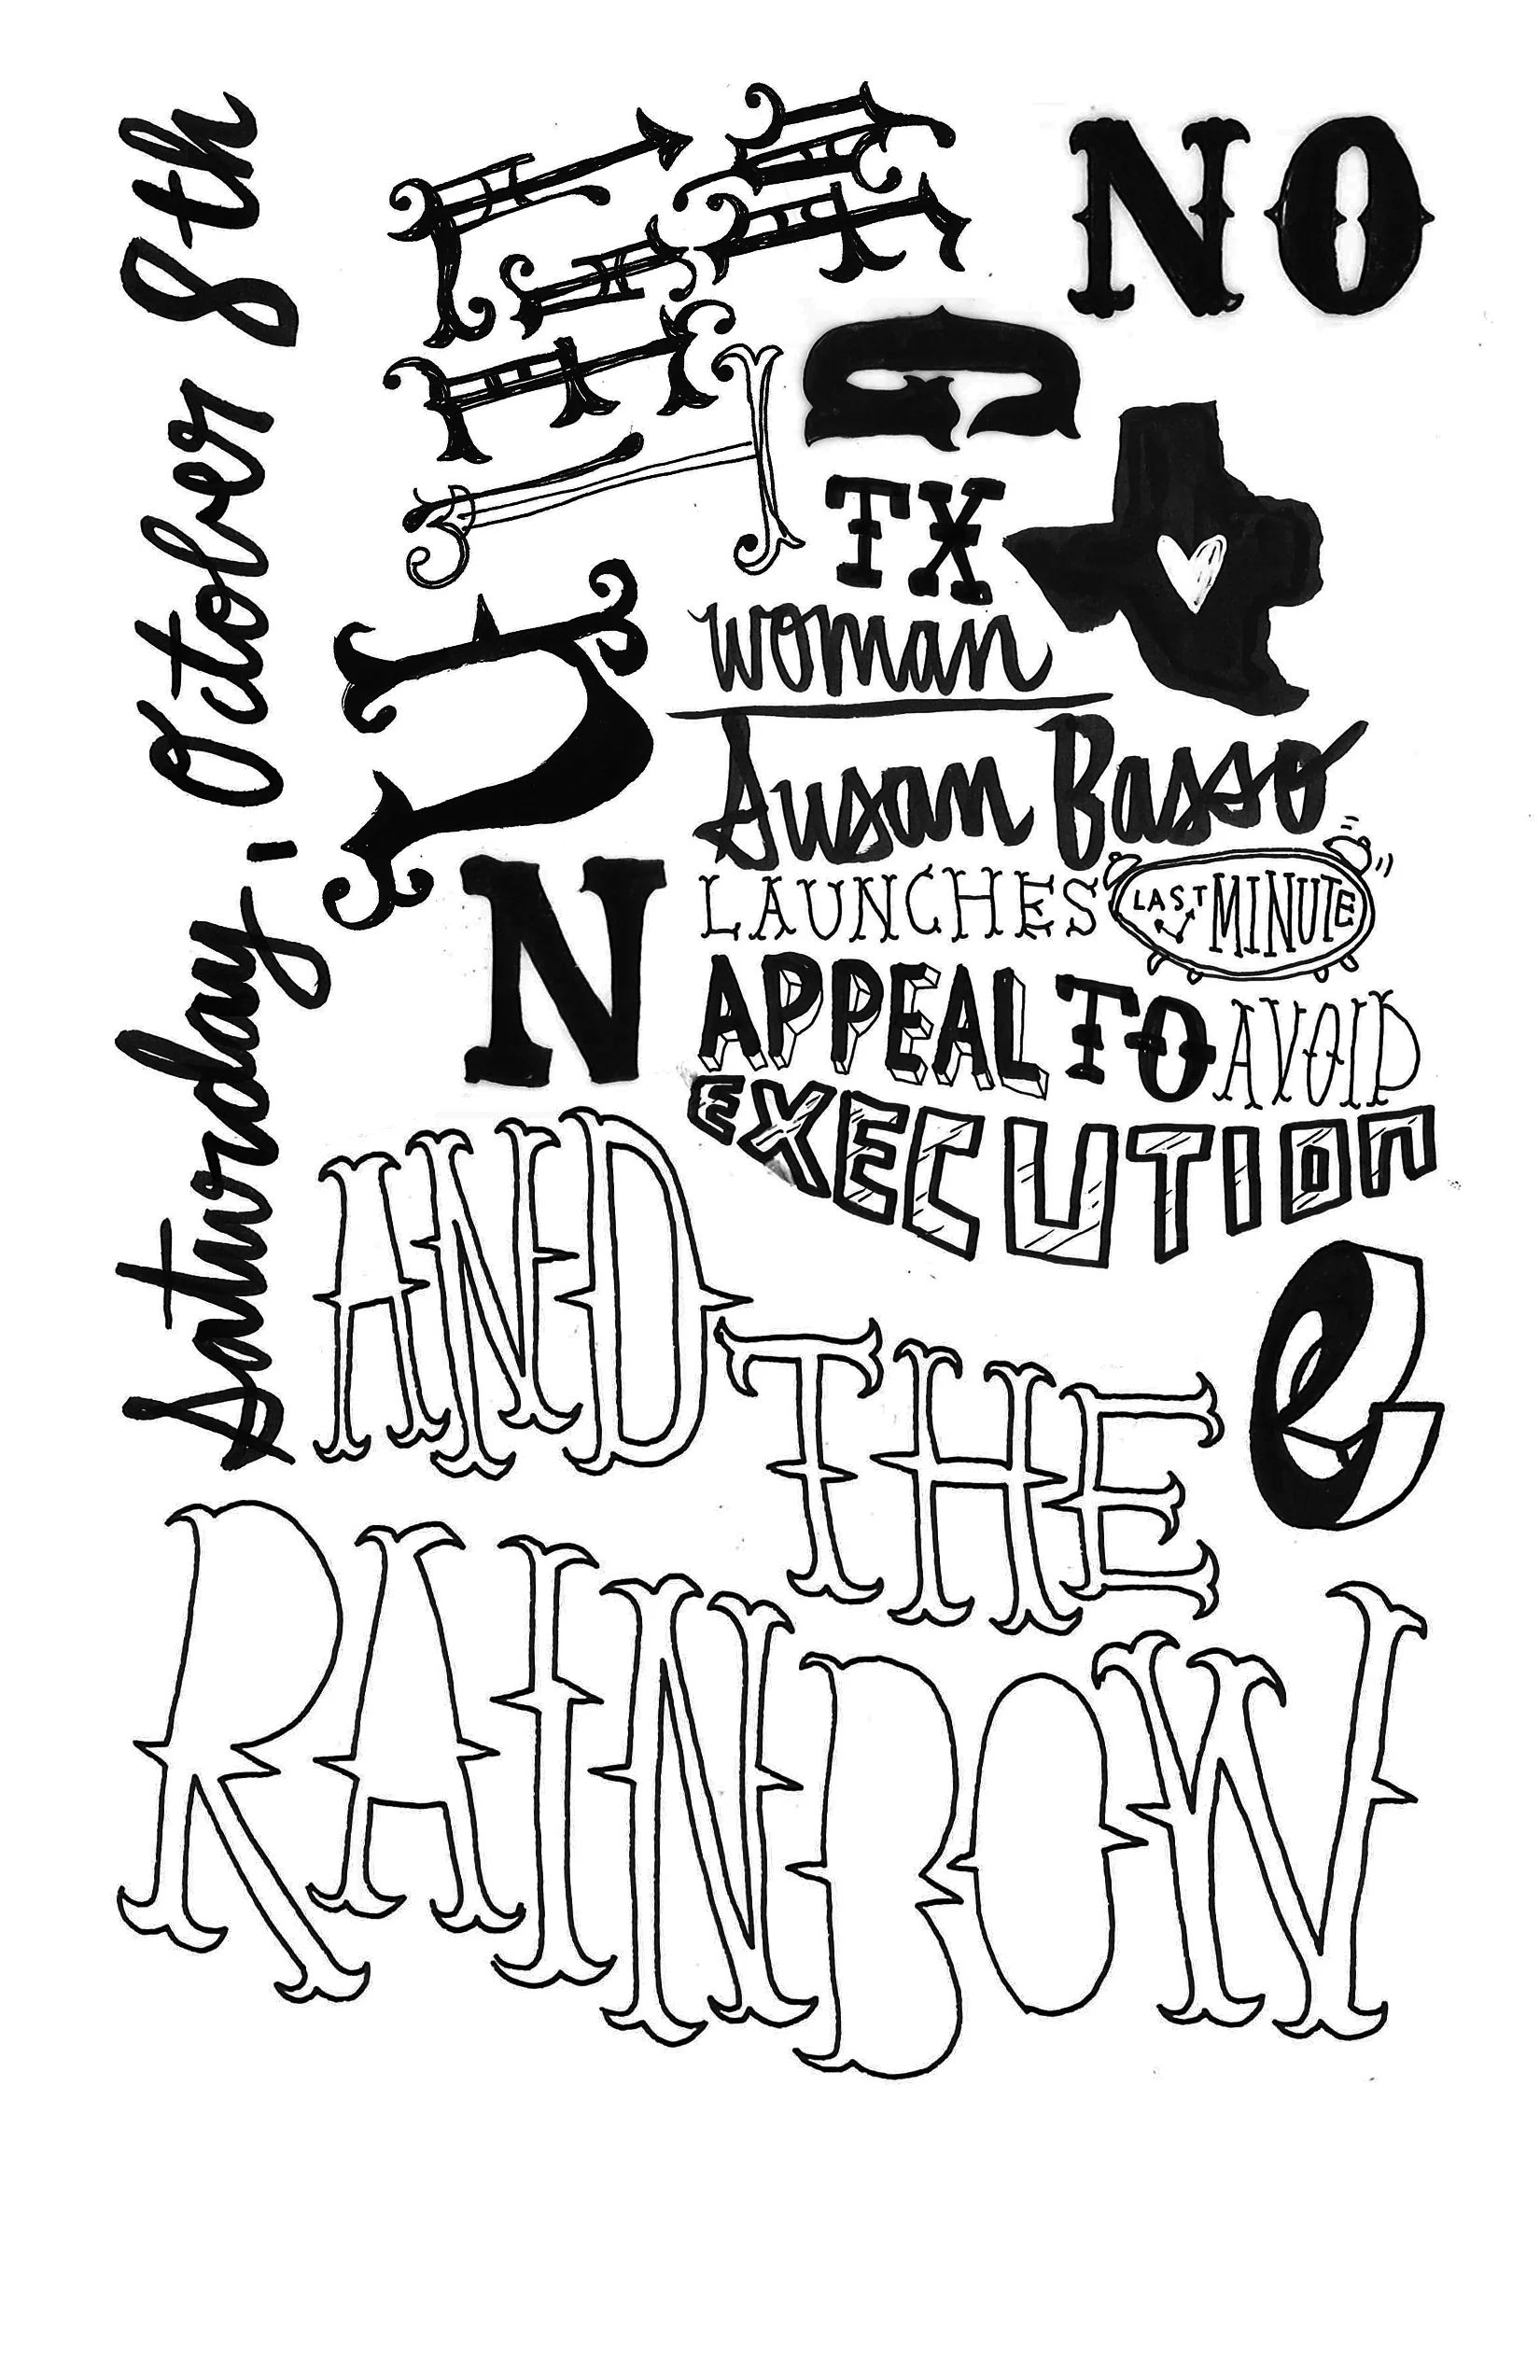 Saturday, October 8th
NO
TX
woman
Susan Basso
LAUNCHES LAST MINUTE
APPEAL TO AVOID
EXECUTION
N
AND
THE
e
RAINBOW